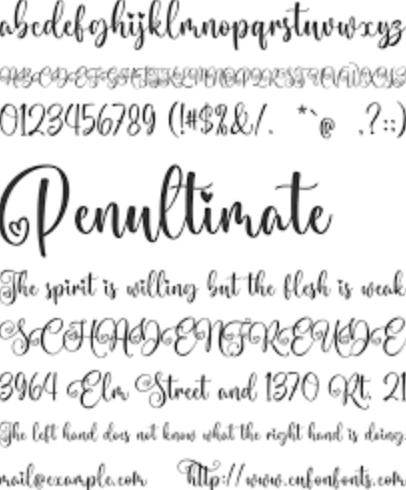 abcdefghijklmnopqrstuvwxyz
ABCDEFGHIJKLMNOPQRSTUVWXYZ
0123456789 (!#$%&/. *`@ .?::)
Penultimate
The spirit is willing but the flesh is weak
SCHADENFREUDE
3964 Elm Street and 1370 Rt. 21
The left hand does not know what the right hand is doing.
mail@example.com http://www.cnfonfonts.com